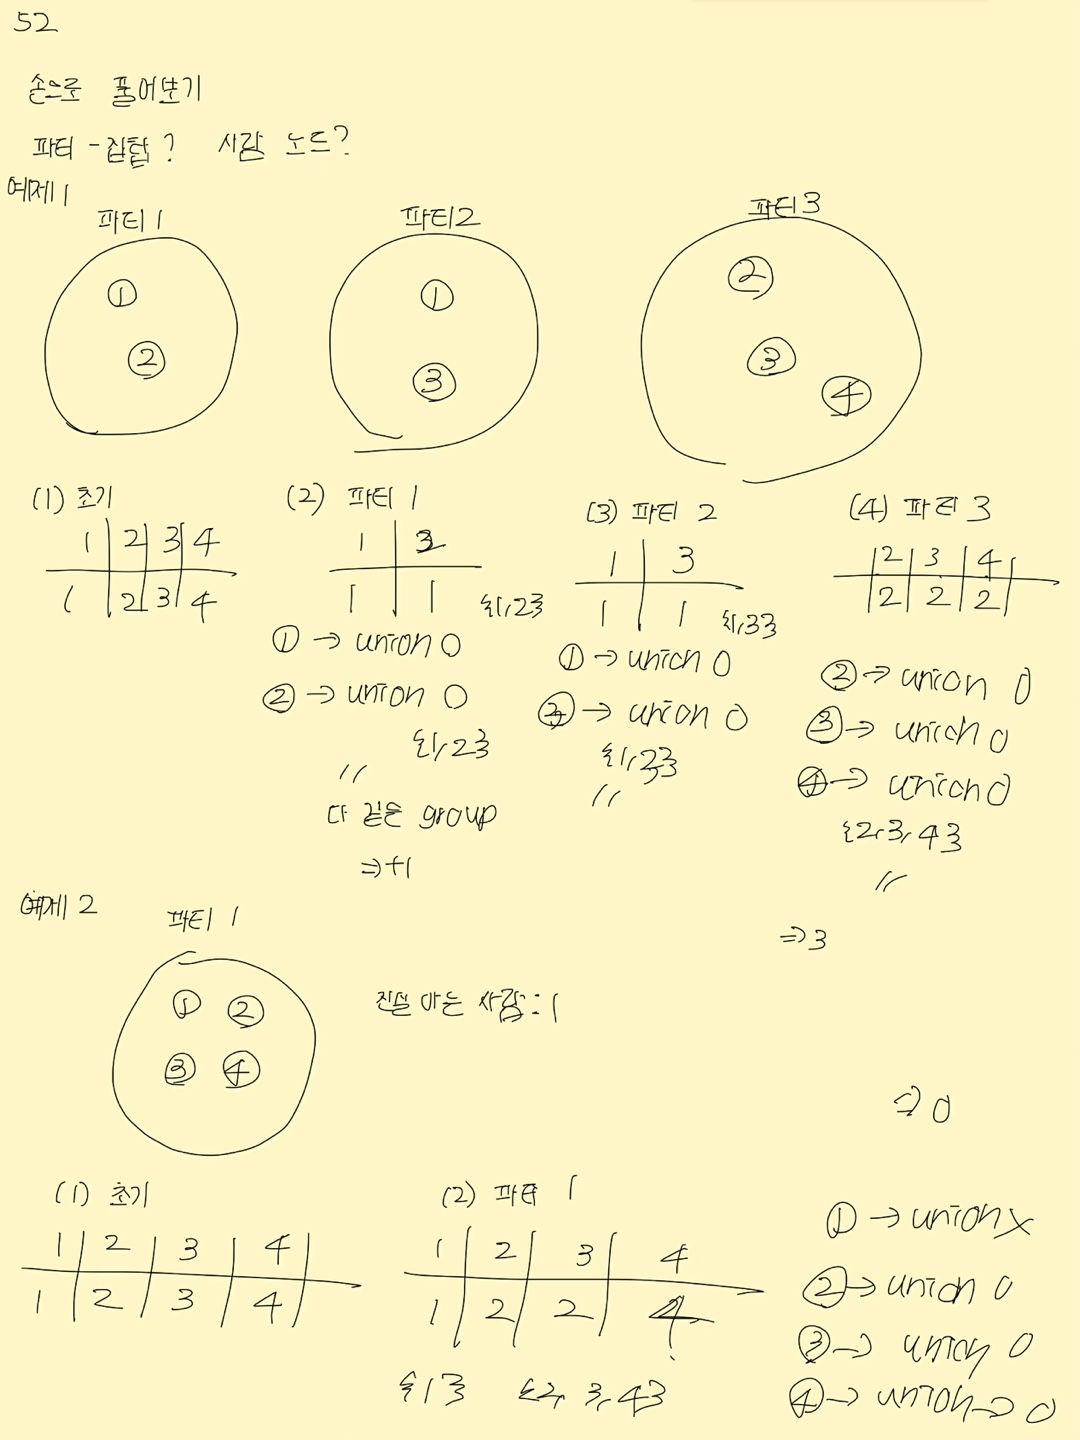 52
손으로 풀어보기
파티 - 집합? 사람 노드?
예제1
파티1 파티2 파티3
① ① ②
② ③ ③
④
(1) 초기
1 2 3 4
1 2 3 4
(2) 파티 1
1 2
1 1 {1,2}
① → union O
② → union O
{1,2}
〃
다 같은 group
⇒ +1
(3) 파티 2
1 3
1 1 {1,3}
① → union O
③ → union O
〃
(4) 파티 3
2 3 4
2 2 2
② → union O
③ → union O
④ → union O
{2,3,4}
〃
⇒ 3
예제2
파티 1
① ②
③ ④
진실 아는 사람: 1
⇒ 0
(1) 초기
1 2 3 4
1 2 3 4
(2) 파티 1
1 2 3 4
1 2 2
{1} {2, 3, 4}
① → union X
② → union O
③ → union O
④ → union → O